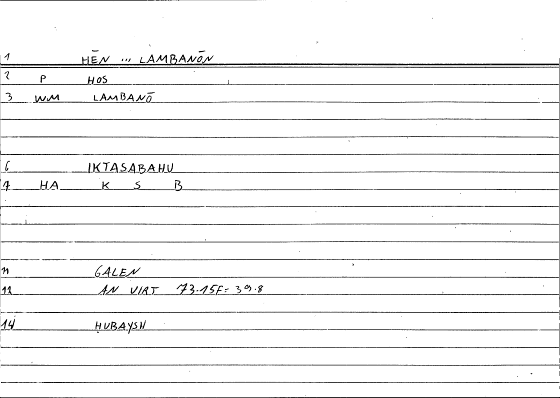 1 HĒN ... LAMBANŌN
2 P HOS
3 WM LAMBANŌ
6 IKTASABAHU
7 HA K S B
11 GALEN
12 AN VIRT 73.15F = 39.8
14 ḤUBAYSH